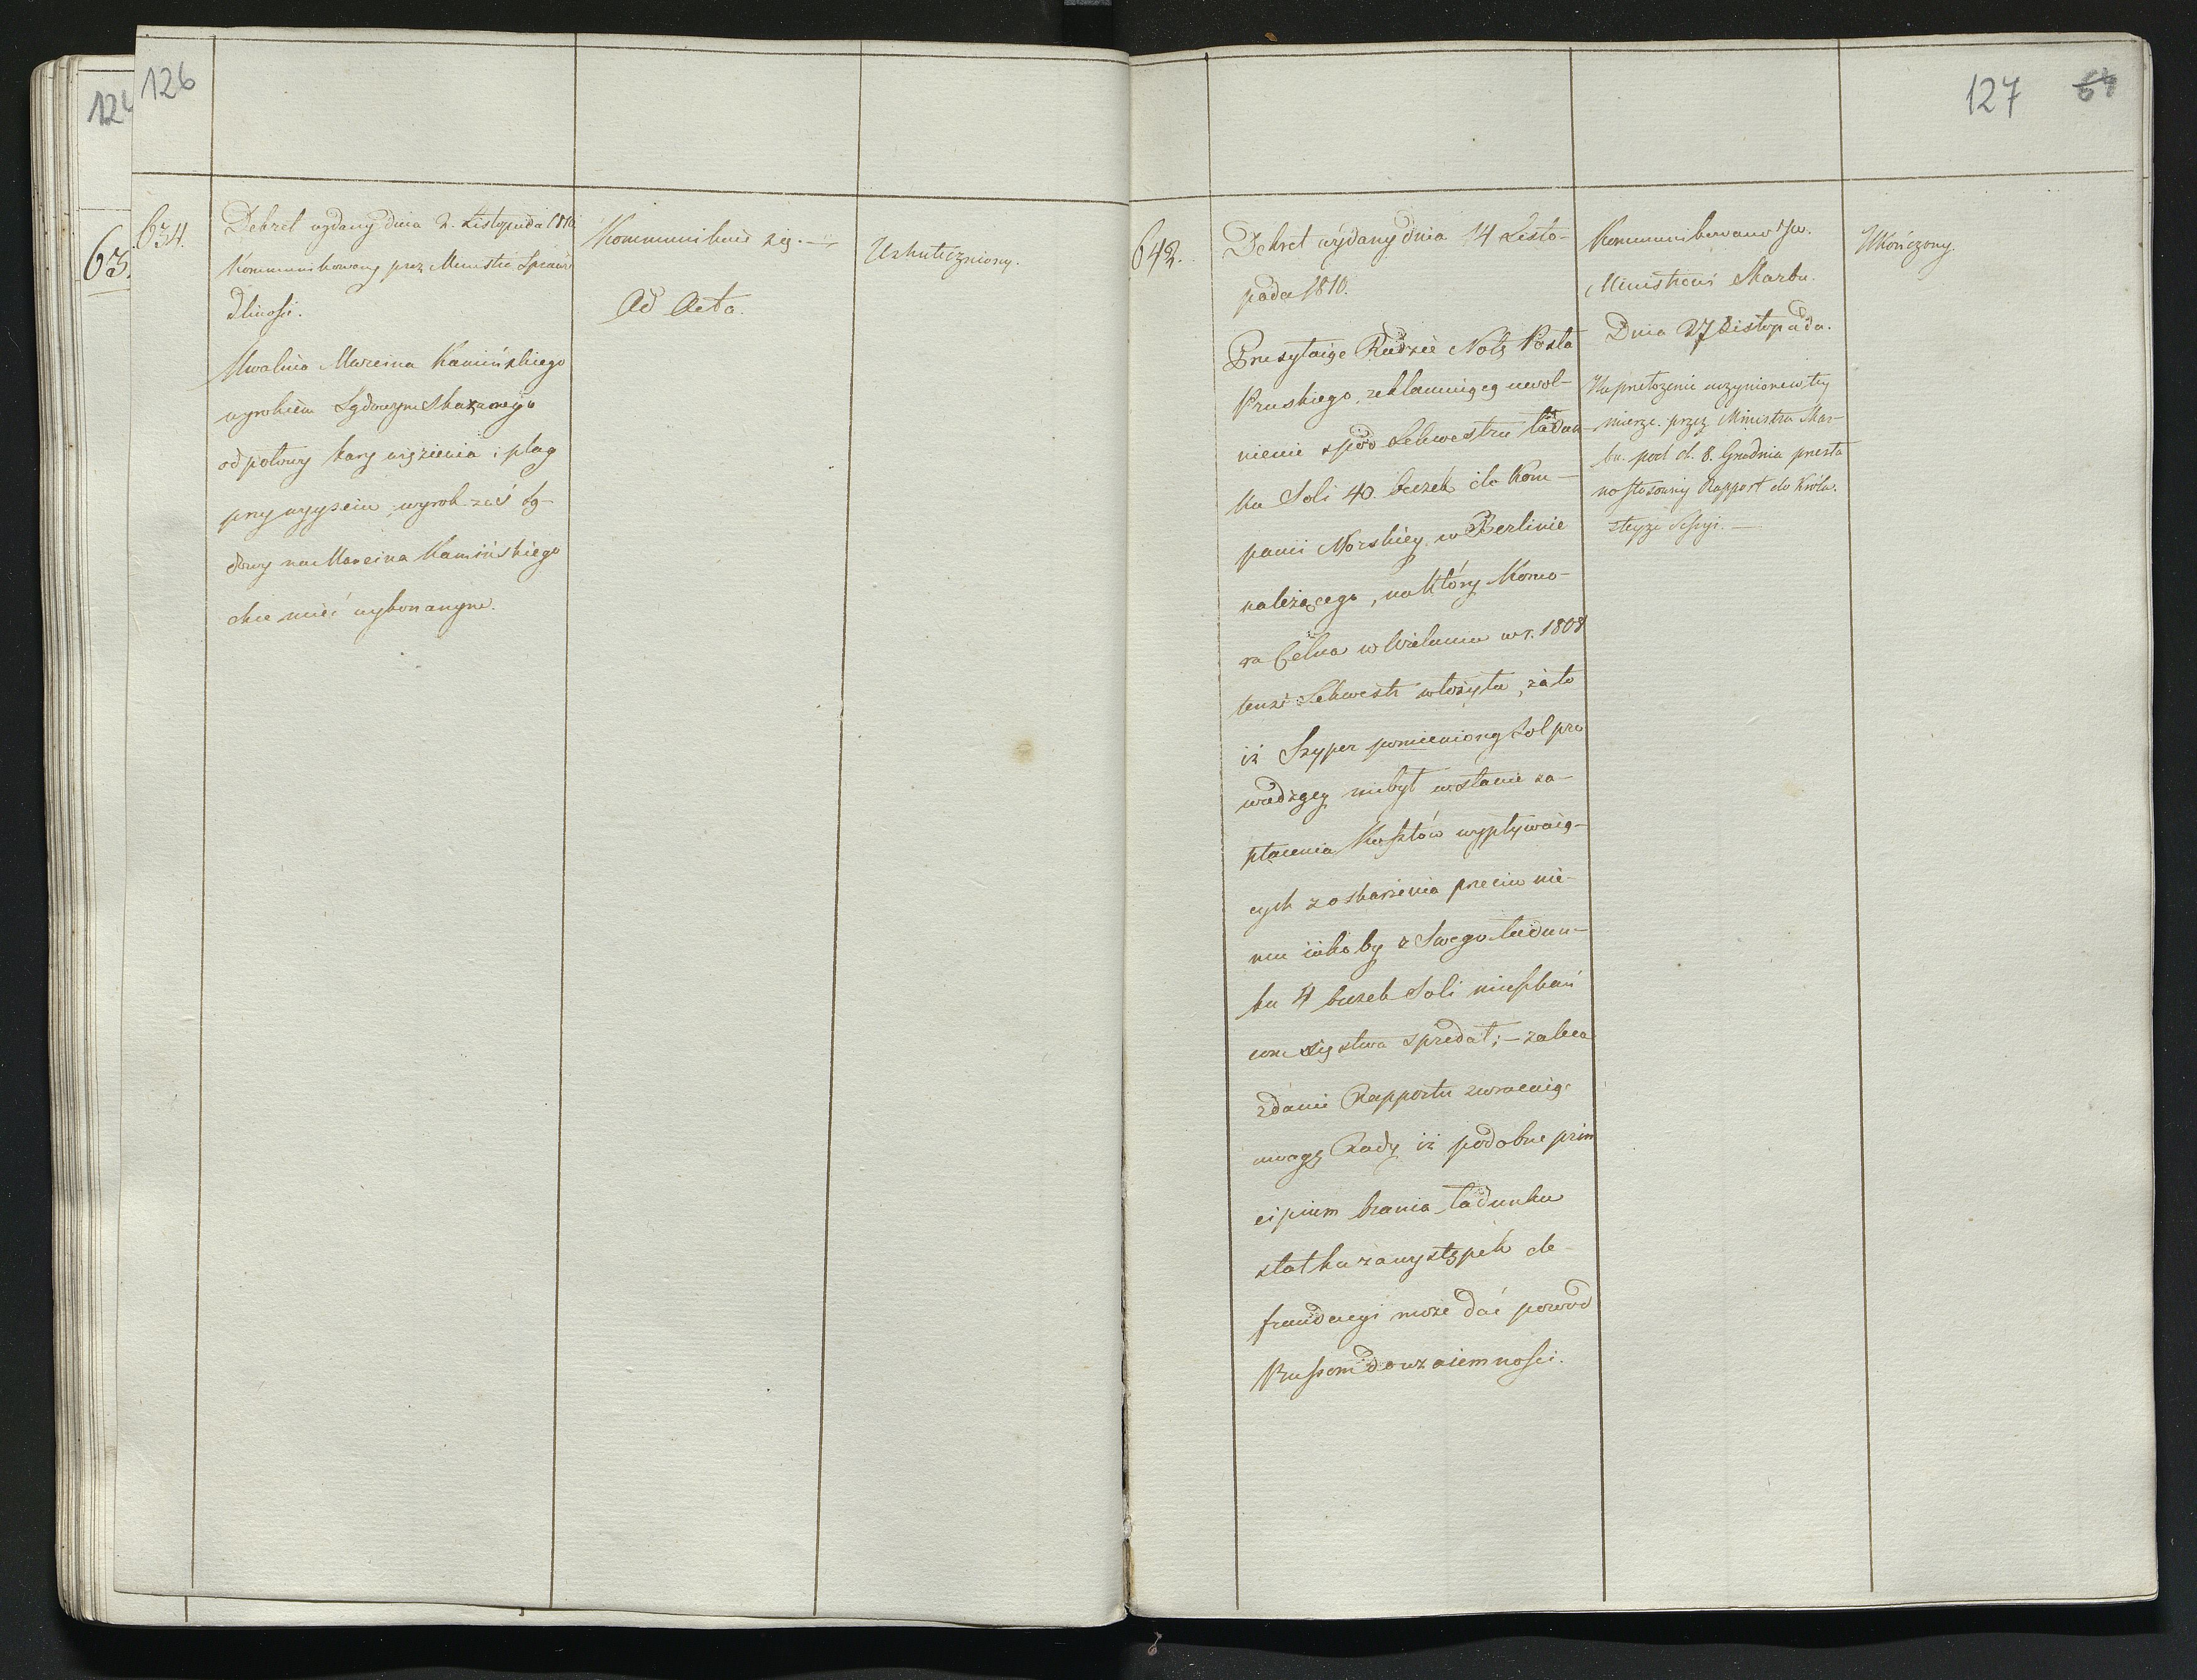 126
124
63.
634.
Dekret wydany dnia 2. Listopada 1810
Kommunikowany przez Ministra Sprawie
dliwości.
Uwalnia Marcina Kamińskiego
wyrokiem Sądowym Skazanego
od połowy kary więzienia i plag
przy wyyściu, wyrok zaś Są-
dowy na Marcina Kamińskiego
chce mieć wykonanym.
Kommunikuie się.
Ad Acta.
Uskuteczniony.
127 64
642.
Dekret wydany dnia 14 Listo-
pada 1810.
Przesyłaiąc Radzie Notę Posła
Pruskiego, reklamuiącą uwol-
nienie z pod Sekwestru ładun-
ku Soli 40. beczek do Kom-
panii Morskiey w Berlinie
należącego, na który Komo-
ra Celna w Wieluniu w r. 1808
tenże Sekwestr włożyła, za to
iż Szyper pomienioną Sol pro
wadzący niebył w stanie za-
płacenia Kosztów wypływaią-
cych z oskarżenia przeciw nie-
mu iakoby z Swego ładun-
ku 4 beczek Soli mieszkań
com Xięstwa sprzedał; – zaleca
zdanie Rapportu zwracaiąc
uwagę Rady iż podobne prin
cipium brania ładunku
statku za występek de-
fraudacyi może dać powód
Prussom do wzaiemności.
Kommunikowano JW.
Ministrowi Skarbu.
Dnia 27 Listopada.
Na przełożenie uczynione w tey
mierze przez Ministra Skar-
bu pod d. 8. Grudnia przesła
no stosowny Rapport do Króla.
Ukończony.